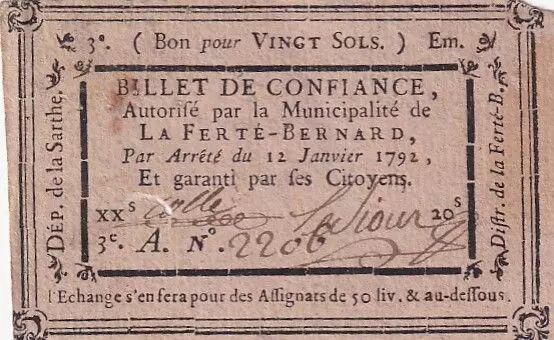 3e. ( Bon pour VINGT SOLS. ) Em.
DÉP. de la Sarthe.
BILLET DE CONFIANCE,
Autoriſé par la Municipalité de
LA FERTÉ-BERNARD,
Par Arrêté du 12 Janvier 1792,
Et garanti par ſes Citoyens.
XXS 20S
3e. A. No. 2206
Diſtr. de la Ferté-B.
l'Echange s'en fera pour des Aſſignats de 50 liv. & au-deſſous.